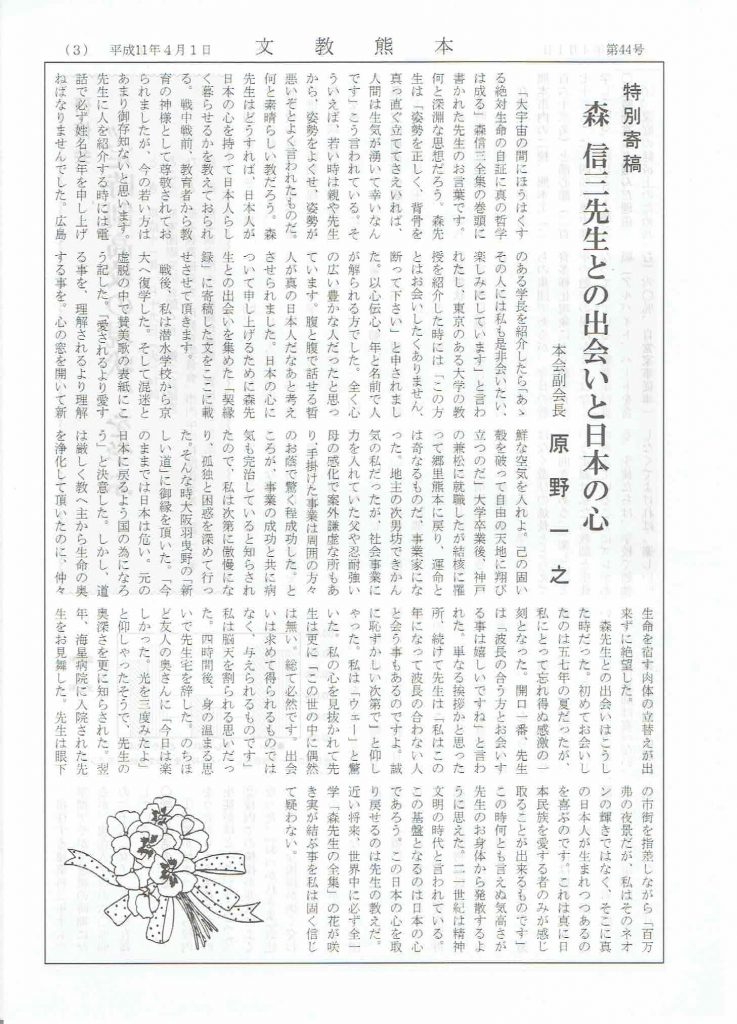 (3) 平成11年4月1日 文教熊本 第44号
特別寄稿
森 信三先生との出会いと日本の心
本会副会長 原野一之
「大宇宙の間にほうはくす
る絶対生命の自証に真の哲学
は成る」森信三全集の巻頭に
書かれた先生のお言葉です。
何と深淵な思想だろう。森先
生は「姿勢を正しく、背骨を
真っ直ぐ立ててさえいれば、
人間は生気が湧いて幸いなん
です」こう言われている。そ
ういえば、若い時は親や先生
から、姿勢をよくせ、姿勢が
悪いぞとよく言われたものだ。
何と素晴らしい教だろう。森
先生はどうすれば、日本人が
日本の心を持って日本人らし
く暮らせるかを教えておられ
る。戦中戦前、教育者から教
育の神様として尊敬されてお
られましたが、今の若い方は
あまり御存知ないと思います。
先生に人を紹介する時には電
話で必ず姓名と年を申し上げ
ねばなりませんでした。広島
のある学長を紹介したら「あゝ
その人には私も是非会いたい、
楽しみにしています」と言わ
れたし、東京のある大学の教
授を紹介した時には「この方
とはお会いしたくありません、
断って下さい」と申されまし
た。以心伝心、年と名前で人
が解られる方でした。全く心
の広い豊かな人だったと思っ
ています。腹と腹で話せる哲
人が真の日本人だなあと考え
させられました。日本の心に
ついて申し上げるために森先
生との出会いを集めた「契縁
録」に寄稿した文をここに載
せさせて頂きます。
戦後、私は潜水学校から京
大へ復学した。そして混迷と
虚脱の中で賛美歌の表紙にこ
う記した。「愛されるより愛す
る事を、理解されるより理解
する事を。心の窓を開いて新
鮮な空気を入れよ。己の固い
殻を破って自由の天地に翔び
立つのだ」大学卒業後、神戸
の兼松に就職したが結核に罹
って郷里熊本に戻り、運命と
は奇なるものだ、事業家にな
った。地主の次男坊できかん
気の私だったが、社会事業に
力を入れていた父や忍耐強い
母の感化で案外謙虚な所もあ
り、手掛けた事業は周囲の方々
のお蔭で驚く程成功した。と
ころが、事業の成功と共に病
気も完治していると知らされ
たので、私は次第に傲慢にな
り、孤独と困惑を深めて行っ
た。そんな時大阪羽曳野の「新
しい道」に御縁を頂いた。「今
のままでは日本は危い。元の
日本に戻るよう国の為になろ
う」と決意した。しかし、道
は厳しく教へ主から生命の奥
を浄化して頂いたのに、仲々
生命を宿す肉体の立替えが出
来ずに絶望した。
森先生との出会いはこうし
た時だった。初めてお会いし
たのは五七年の夏だったが、
私にとって忘れ得ぬ感激の一
刻となった。開口一番、先生
は「波長の合う方とお会いす
る事は嬉しいですね」と言わ
れた。単なる挨拶かと思った
所、続けて先生は「私はこの
年になって波長の合わない人
と会う事もあるのですよ。誠
に恥ずかしい次第で」と仰し
ゃった。私は「ウェー」と驚
いた。私の心を見抜かれて先
生は更に「この世の中に偶然
は無い。総て必然です。出会
いは求めて得られるものでは
なく、与えられるものです」
私は脳天を割られる思いだっ
た。四時間後、身の温まる思
いで先生宅を辞した。のちほ
ど友人の奥さんに「今日は楽
しかった。光を三度みたよ」
と仰しゃったそうで、先生の
奥深さを更に知らされた。翌
年、海星病院に入院された先
生をお見舞した。先生は眼下
の市街を指差しながら「百万
弗の夜景だが、私はそのネオ
ンの輝きではなく、そこに真
の日本人が生まれつつあるの
を喜ぶのです。これは真に日
本民族を愛する者のみが感じ
取ることが出来るものです」
この時何とも言えぬ気高さが
先生のお身体から発散するよ
うに思えた。二一世紀は精神
文明の時代と言われている。
この基盤となるのは日本の心
であろう。この日本の心を取
り戻せるのは先生の教えだ。
近い将来、世界中に必ず全一
学「森先生の全集」の花が咲
き実が結ぶ事を私は固く信じ
て疑わない。